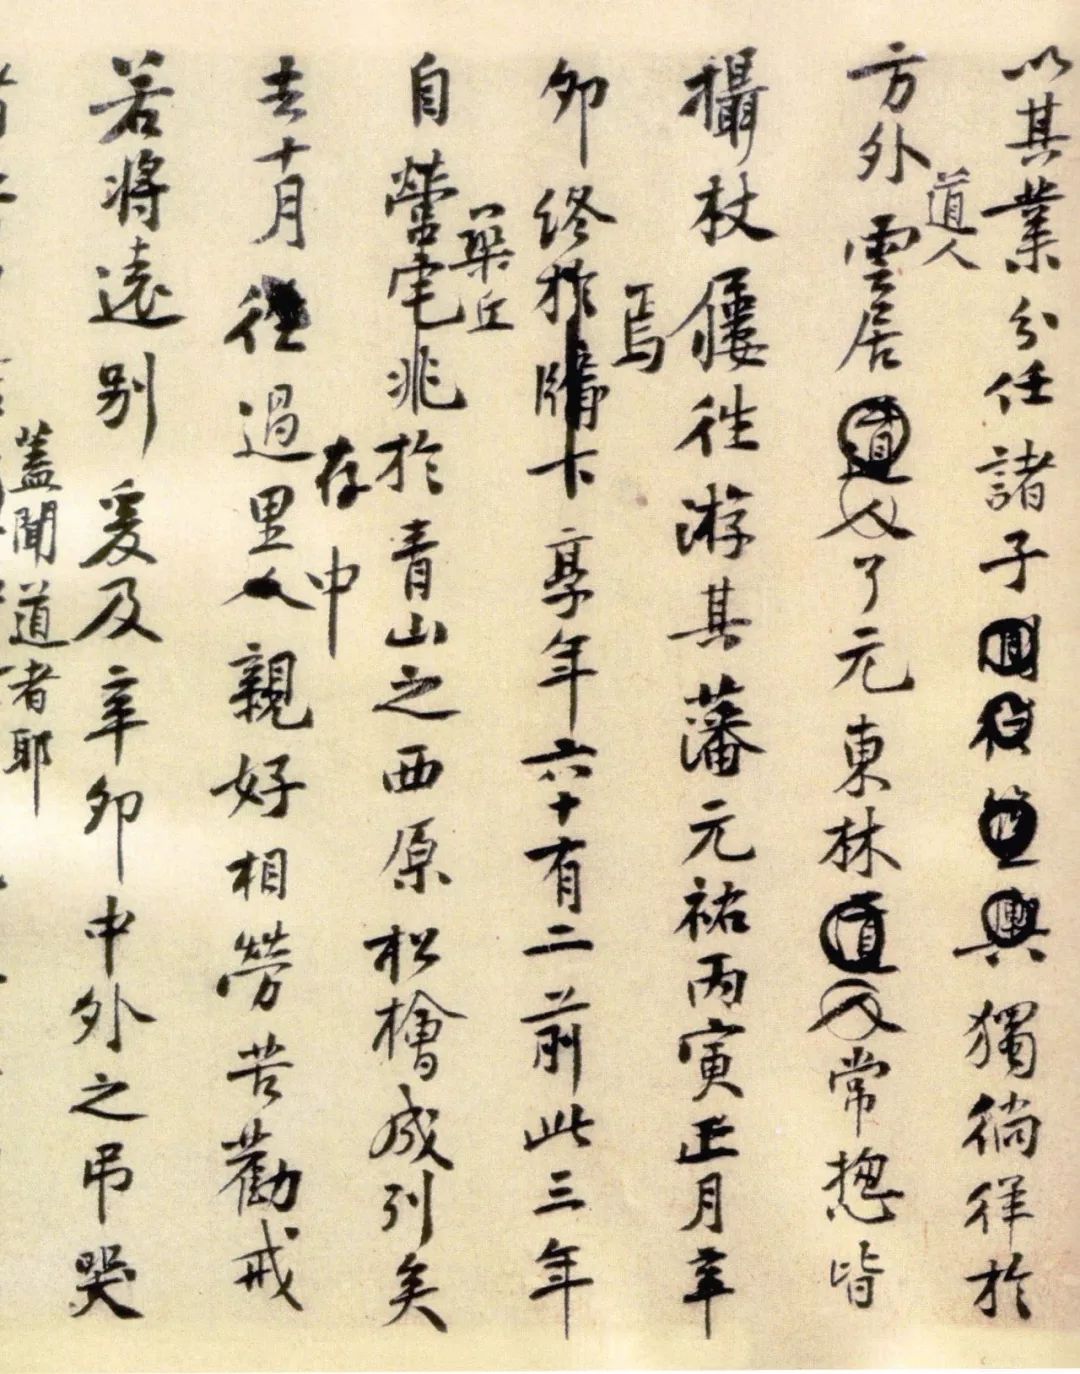 以其業分任諸子獨徜徉於
道人
方外雲居道人了元東林道人常揔皆
攝杖屨往游其藩元祐丙寅正月辛
焉
卯終於牖下享年六十有二前此三年
築丘
自營宅兆於青山之西原松檜成列矣
存中
去十月往過里人親好相勞苦勸戒
若將遠別爰及辛卯中外之吊哭
蓋聞道者耶